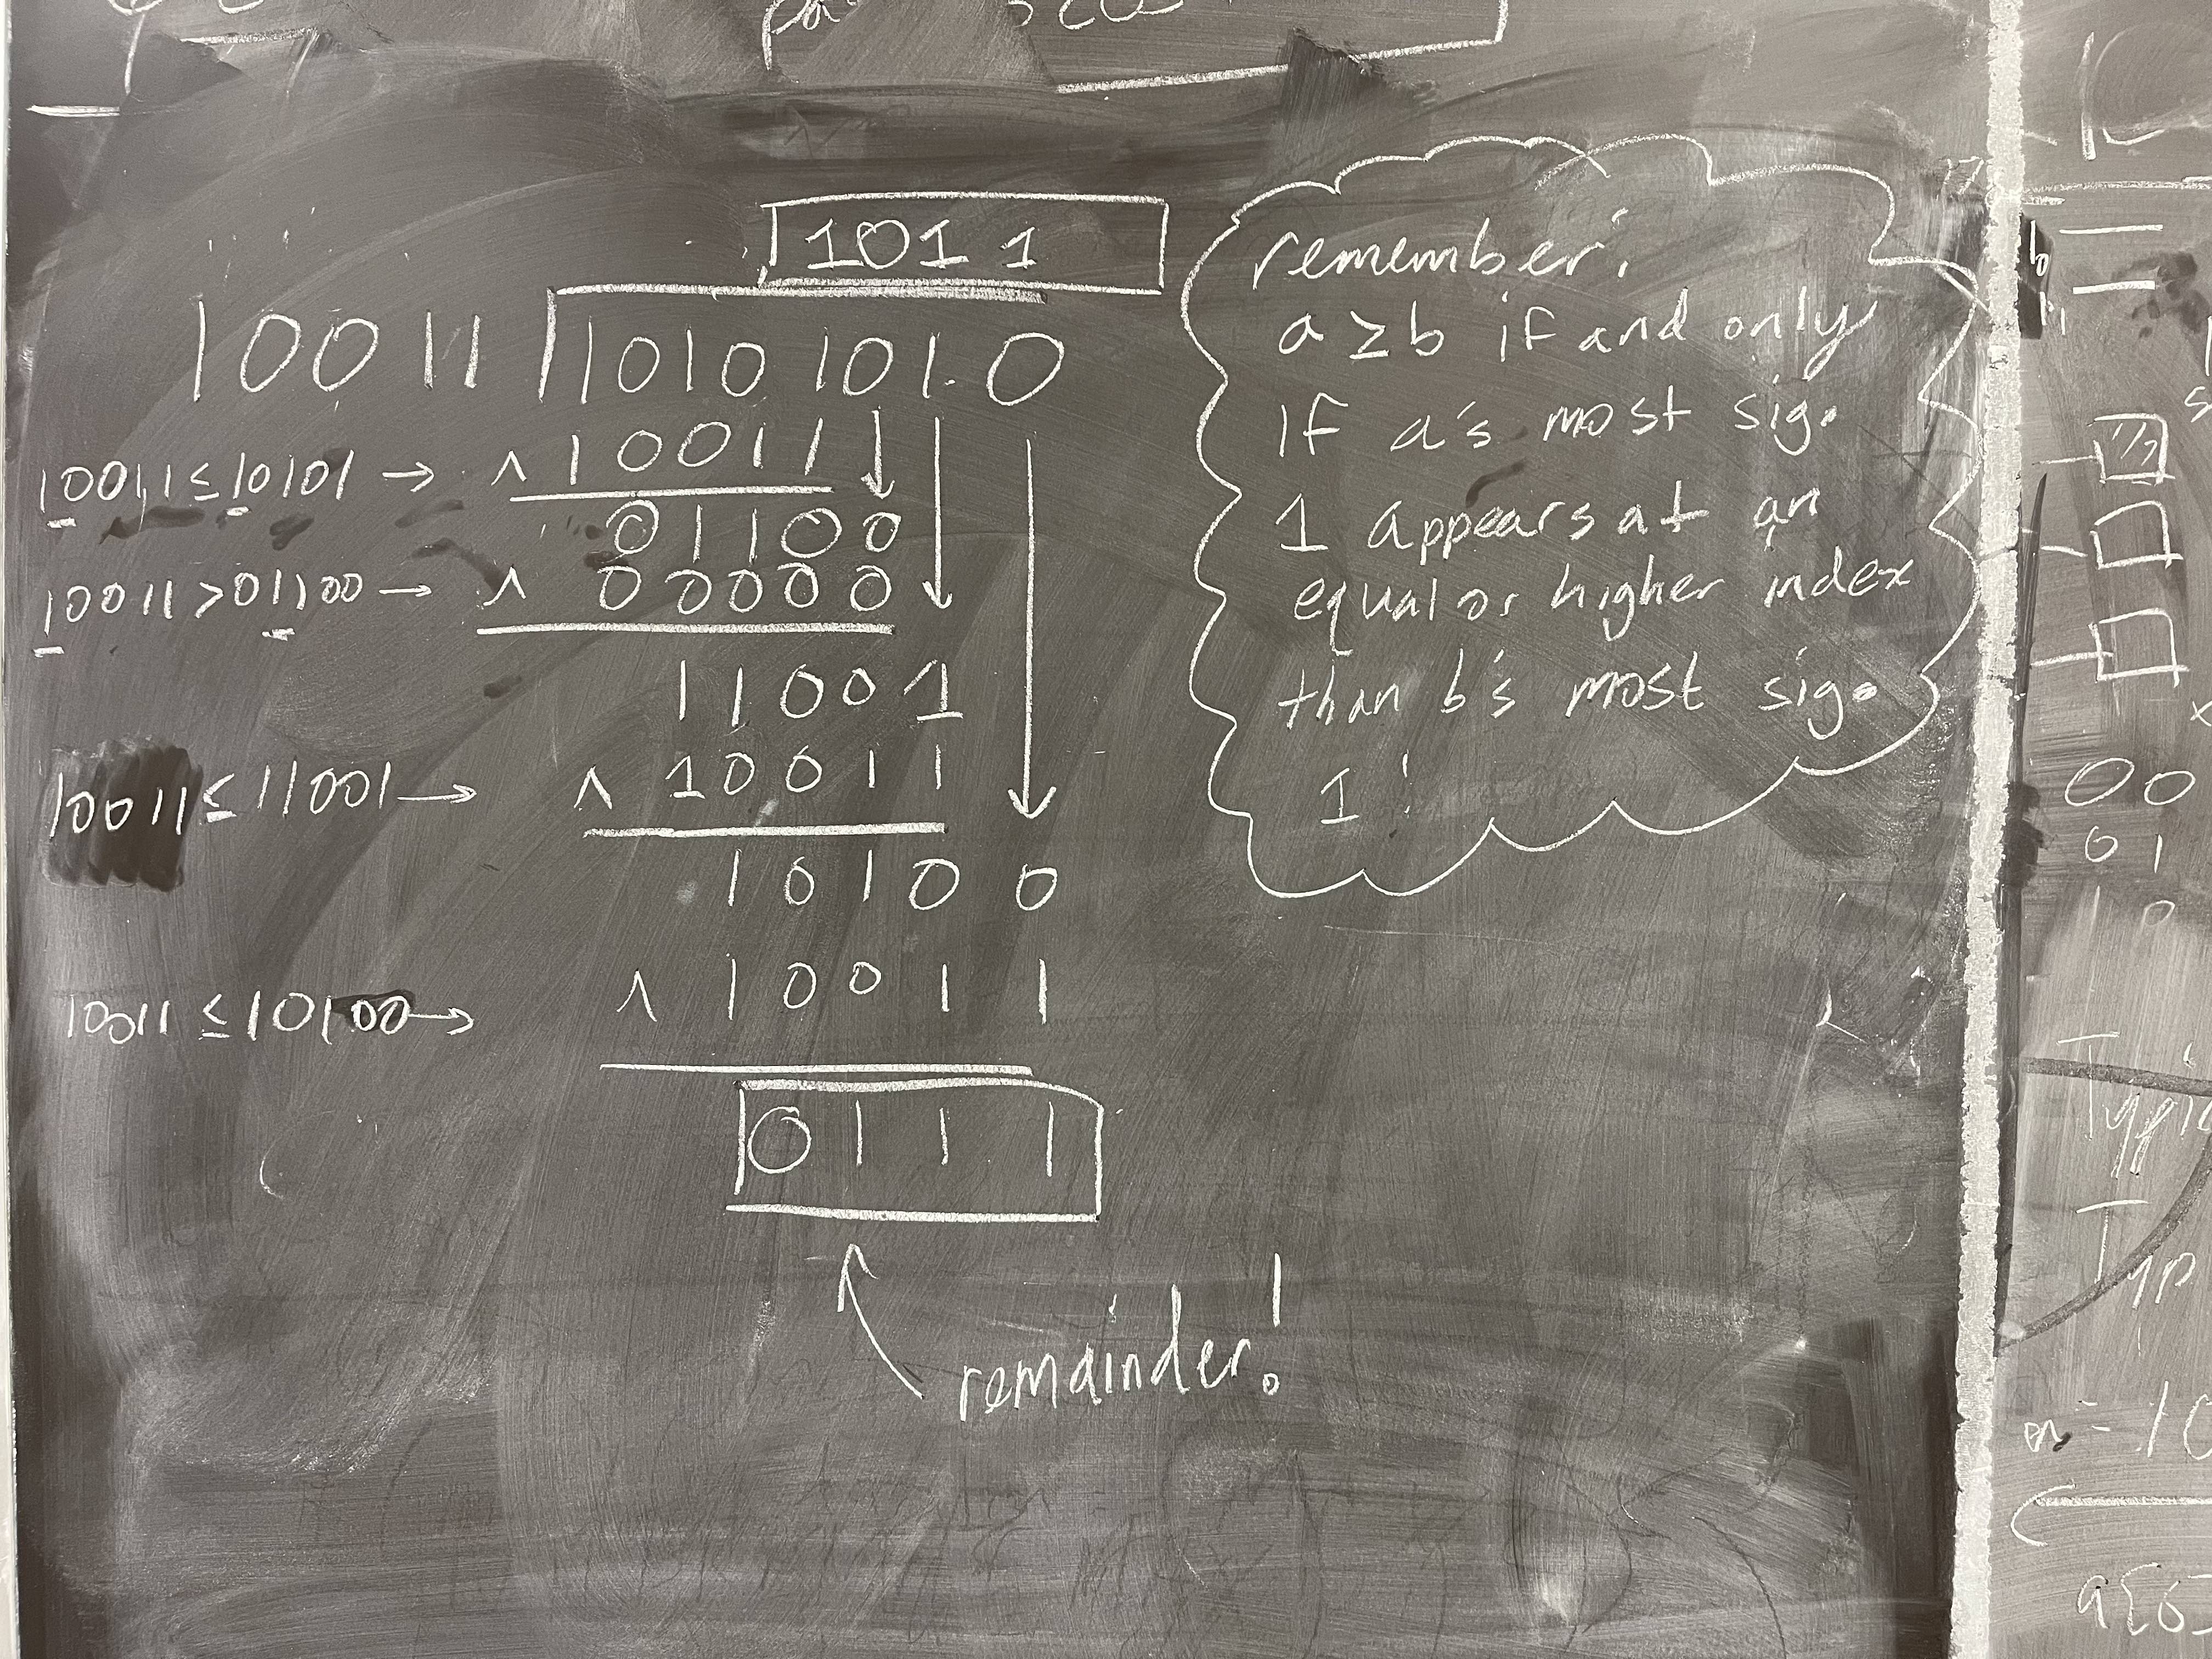 1011
10011 10101010
10011 ≤ 10101 → ^ 10011
01100
10011 > 01100 → ^ 00000
11001
10011 ≤ 11001 → ^ 10011
10100
10011 ≤ 10100 → ^ 10011
0111
remainder!
remember:
a ≥ b if and only
if a's most sig.
1 appears at an
equal or higher index
than b's most sig.
1!
00
01
10
Typ